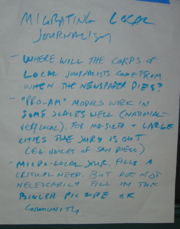 MIGRATING LOCAL
JOURNALISM
- WHERE WILL THE CORPS OF
LOCAL JOURNALISTS COME FROM
WHEN THE NEWSPAPER DIES?
- "PRO-AM" MODELS WORK IN
SOME SCALES WELL (NATIONAL-
VERTICAL). FOR MID-SIZE - LARGE
CITIES THE JURY IS OUT
(VOICES OF SAN DIEGO)
- MICRO-LOCAL JOUR. FILLS A
CRITICAL NEED. BUT DOES NOT
NECESSARILY FILL IN THE
BIGGER PICTURE OF
COMMUNITY.